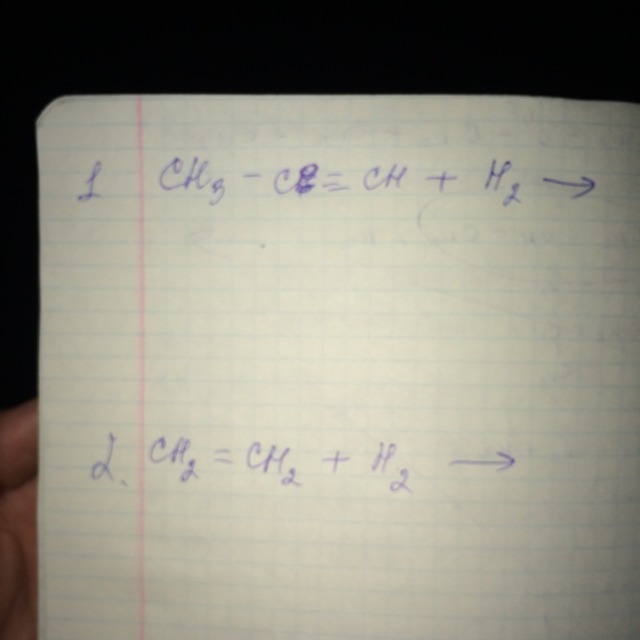 1 CH₃ - C≡CH + H₂ →
2. CH₂ = CH₂ + H₂ →